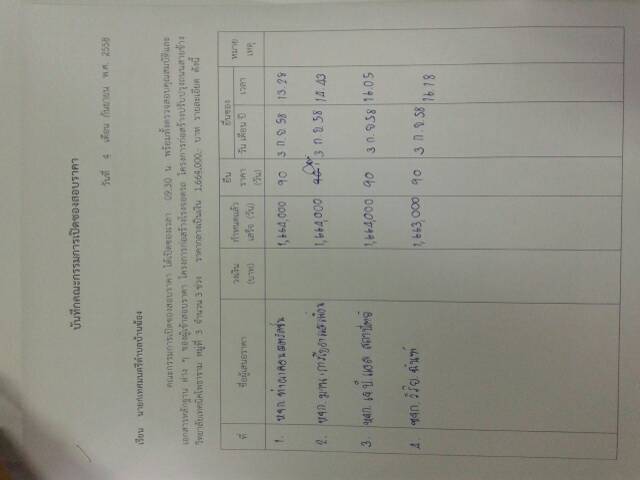 บันทึกคณะกรรมการเปิดซองสอบราคา
วันที่ 4 เดือน กันยายน พ.ศ. 2558
เรียน นายกเทศมนตรีตำบลบ้านฆ้อง
คณะกรรมการเปิดซองสอบราคา ได้เปิดซองเวลา 09.30 น. พร้อมทั้งตรวจสอบคุณสมบัติและ
เอกสารหลักฐาน ต่าง ๆ ของผู้เข้าสอบราคา โครงการก่อสร้างโรงจอดรถ โครงการก่อสร้างปรับปรุงถนนสายข้าง
วิทยาลัยเทคนิคโพธาราม หมู่ที่ 3 จำนวน 3 ช่วง ราคากลางเป็นเงิน 1,664,000.- บาท รายละเอียด ดังนี้
ที่ ชื่อผู้เสนอราคา วงเงิน (บาท) กำหนดแล้วเสร็จ (วัน) ยืนราคา (วัน) ยื่นซอง หมายเหตุ
วัน เดือน ปี เวลา
1. หจก. 1,664,000 90 3 ก.ย. 58 13.29
2. หจก. 1,664,000 3 ก.ย. 58 14.43
3. หจก. เจ.ป. 1,664,000 90 3 ก.ย. 58 16.05
4. หจก. วิริยะ 1,663,000 90 3 ก.ย. 58 16.18